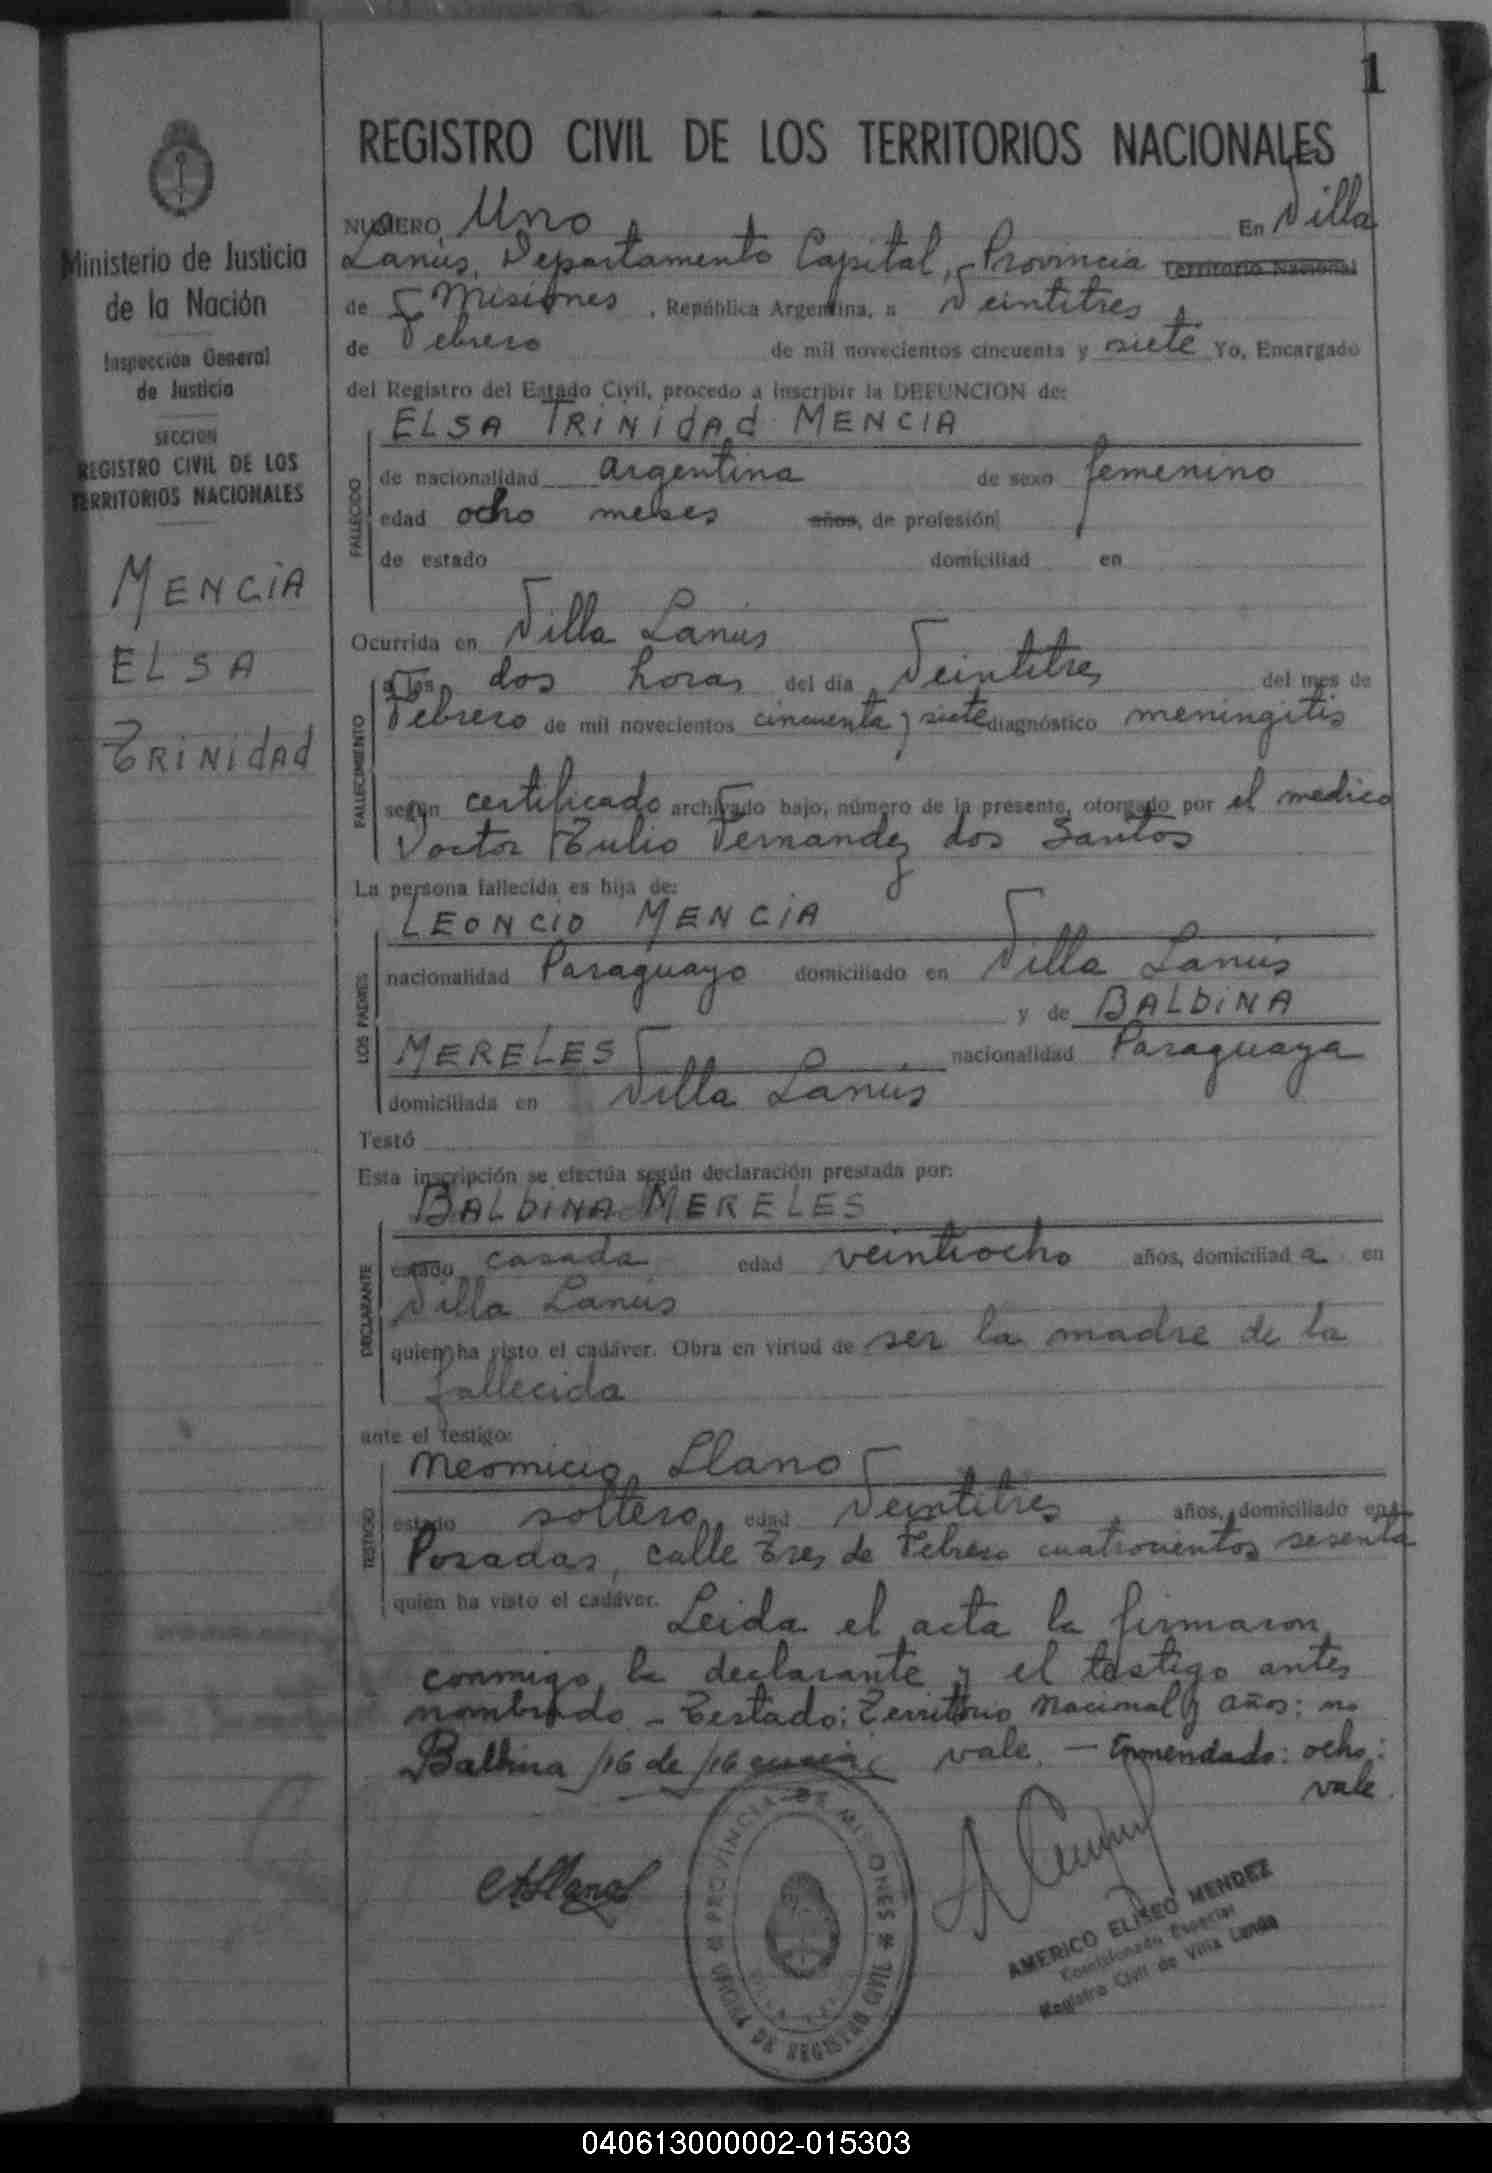 1
REGISTRO CIVIL DE LOS TERRITORIOS NACIONALES
Ministerio de Justicia
de la Nación
Inspección General
de Justicia
SECCION
REGISTRO CIVIL DE LOS
TERRITORIOS NACIONALES
MENCIA
ELSA
TRINIDAD
NUMERO Uno En Villa
Lanús, Departamento Capital, Provincia Territorio Nacional
de Misiones, República Argentina, a Veintitres
de Febrero de mil novecientos cincuenta y siete Yo, Encargado
del Registro del Estado Civil, procedo a inscribir la DEFUNCION de:
ELSA TRINIDAD MENCIA
FALLECIDO
de nacionalidad argentina de sexo femenino
edad ocho meses años, de profesión
de estado domiciliad en
Ocurrida en Villa Lanús
FALLECIMIENTO
a las dos horas del día Veintitres del mes de
Febrero de mil novecientos cincuenta y siete diagnóstico meningitis
según certificado archivado bajo, número de la presente, otorgado por el medico
Doctor Tulio Fernandez dos Santos
La persona fallecida es hija de:
LEONCIO MENCIA
LOS PADRES
nacionalidad Paraguayo domiciliado en Villa Lanús
y de BALBINA
MERELES nacionalidad Paraguaya
domiciliada en Villa Lanús
Testó
Esta inscripción se efectúa según declaración prestada por:
BALBINA MERELES
DECLARANTE
estado casada edad veintiocho años, domiciliad a en
Villa Lanús
quien ha visto el cadáver. Obra en virtud de ser la madre de la
fallecida
ante el testigo:
Llano
TESTIGO
estado soltero edad Veintitres años, domiciliado en
Posadas, calle Tres de Febrero cuatrocientos sesenta
quien ha visto el cadáver. Leida el acta la firmaron
conmigo la declarante y el testigo antes
nombrado - Testado: Territorio Nacional y años: no
Balbina vale. - Enmendado: ocho:
vale.
PROVINCIA DE MISIONES * OFICINA DE REGISTRO CIVIL *
AMERICO ELISEO MENDEZ
Comisionado Especial
Registro Civil de Villa Lanús
040613000002-015303